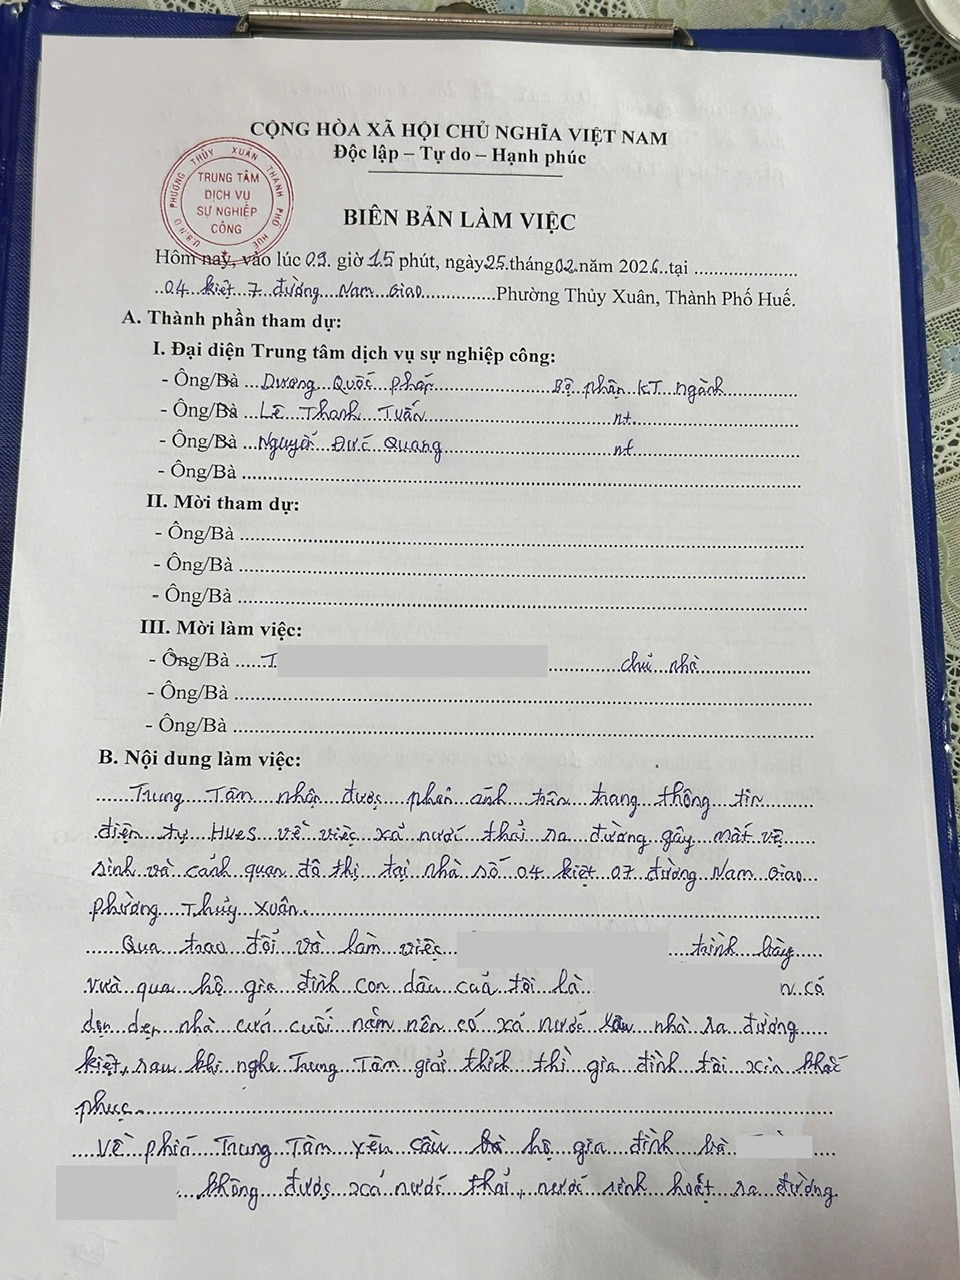 CỘNG HÒA XÃ HỘI CHỦ NGHĨA VIỆT NAM
Độc lập – Tự do – Hạnh phúc
U.B.N.D PHƯỜNG THỦY XUÂN THÀNH PHỐ HUẾ
TRUNG TÂM
DỊCH VỤ
SỰ NGHIỆP
CÔNG
BIÊN BẢN LÀM VIỆC
Hôm nay, vào lúc 09. giờ 15 phút, ngày 25.tháng 02.năm 2026.tại
04 kiệt 7 đường Nam Giao Phường Thủy Xuân, Thành Phố Huế.
A. Thành phần tham dự:
I. Đại diện Trung tâm dịch vụ sự nghiệp công:
- Ông/Bà Dương Quốc Pháp Bộ phận KT ngành
- Ông/Bà Lê Thanh Tuấn nt
- Ông/Bà Nguyễn Đức Quang nt
- Ông/Bà
II. Mời tham dự:
- Ông/Bà
- Ông/Bà
- Ông/Bà
III. Mời làm việc:
- Ông/Bà T chủ nhà
- Ông/Bà
- Ông/Bà
B. Nội dung làm việc:
Trung Tâm nhận được phản ánh trên trang thông tin
điện tử HueS về việc xả nước thải ra đường gây mất vệ
sinh và cảnh quan đô thị tại nhà số 04 kiệt 07 đường Nam Giao
phường Thủy Xuân.
Qua trao đổi và làm việc trình bày
vừa qua hộ gia đình con dâu của tôi là n có
dọn dẹp nhà cửa cuối năm nên có xả nước nhà ra đường
kiệt, sau khi nghe Trung Tâm giải thích thì gia đình tôi xin khắc
phục.
Về phía Trung Tâm yêu cầu hộ gia đình bà
không được xả nước thải, nước sinh hoạt ra đường